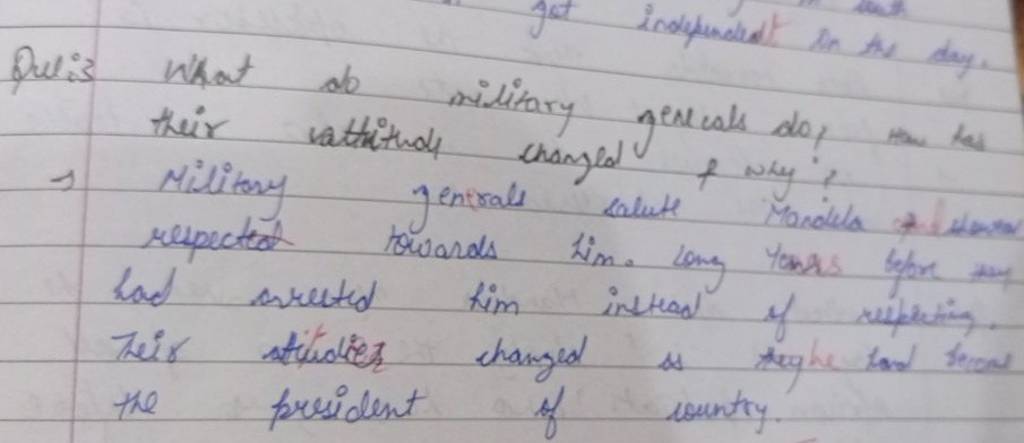 get independent on the day.
Que:3 What do military generals do, How has
their attitude changed & why?
→ Military generals salute Mandela and showed
respected towards him. Long Years before they
had arrested him instead of respecting.
Their attitudies changed as he had become
the president of country.